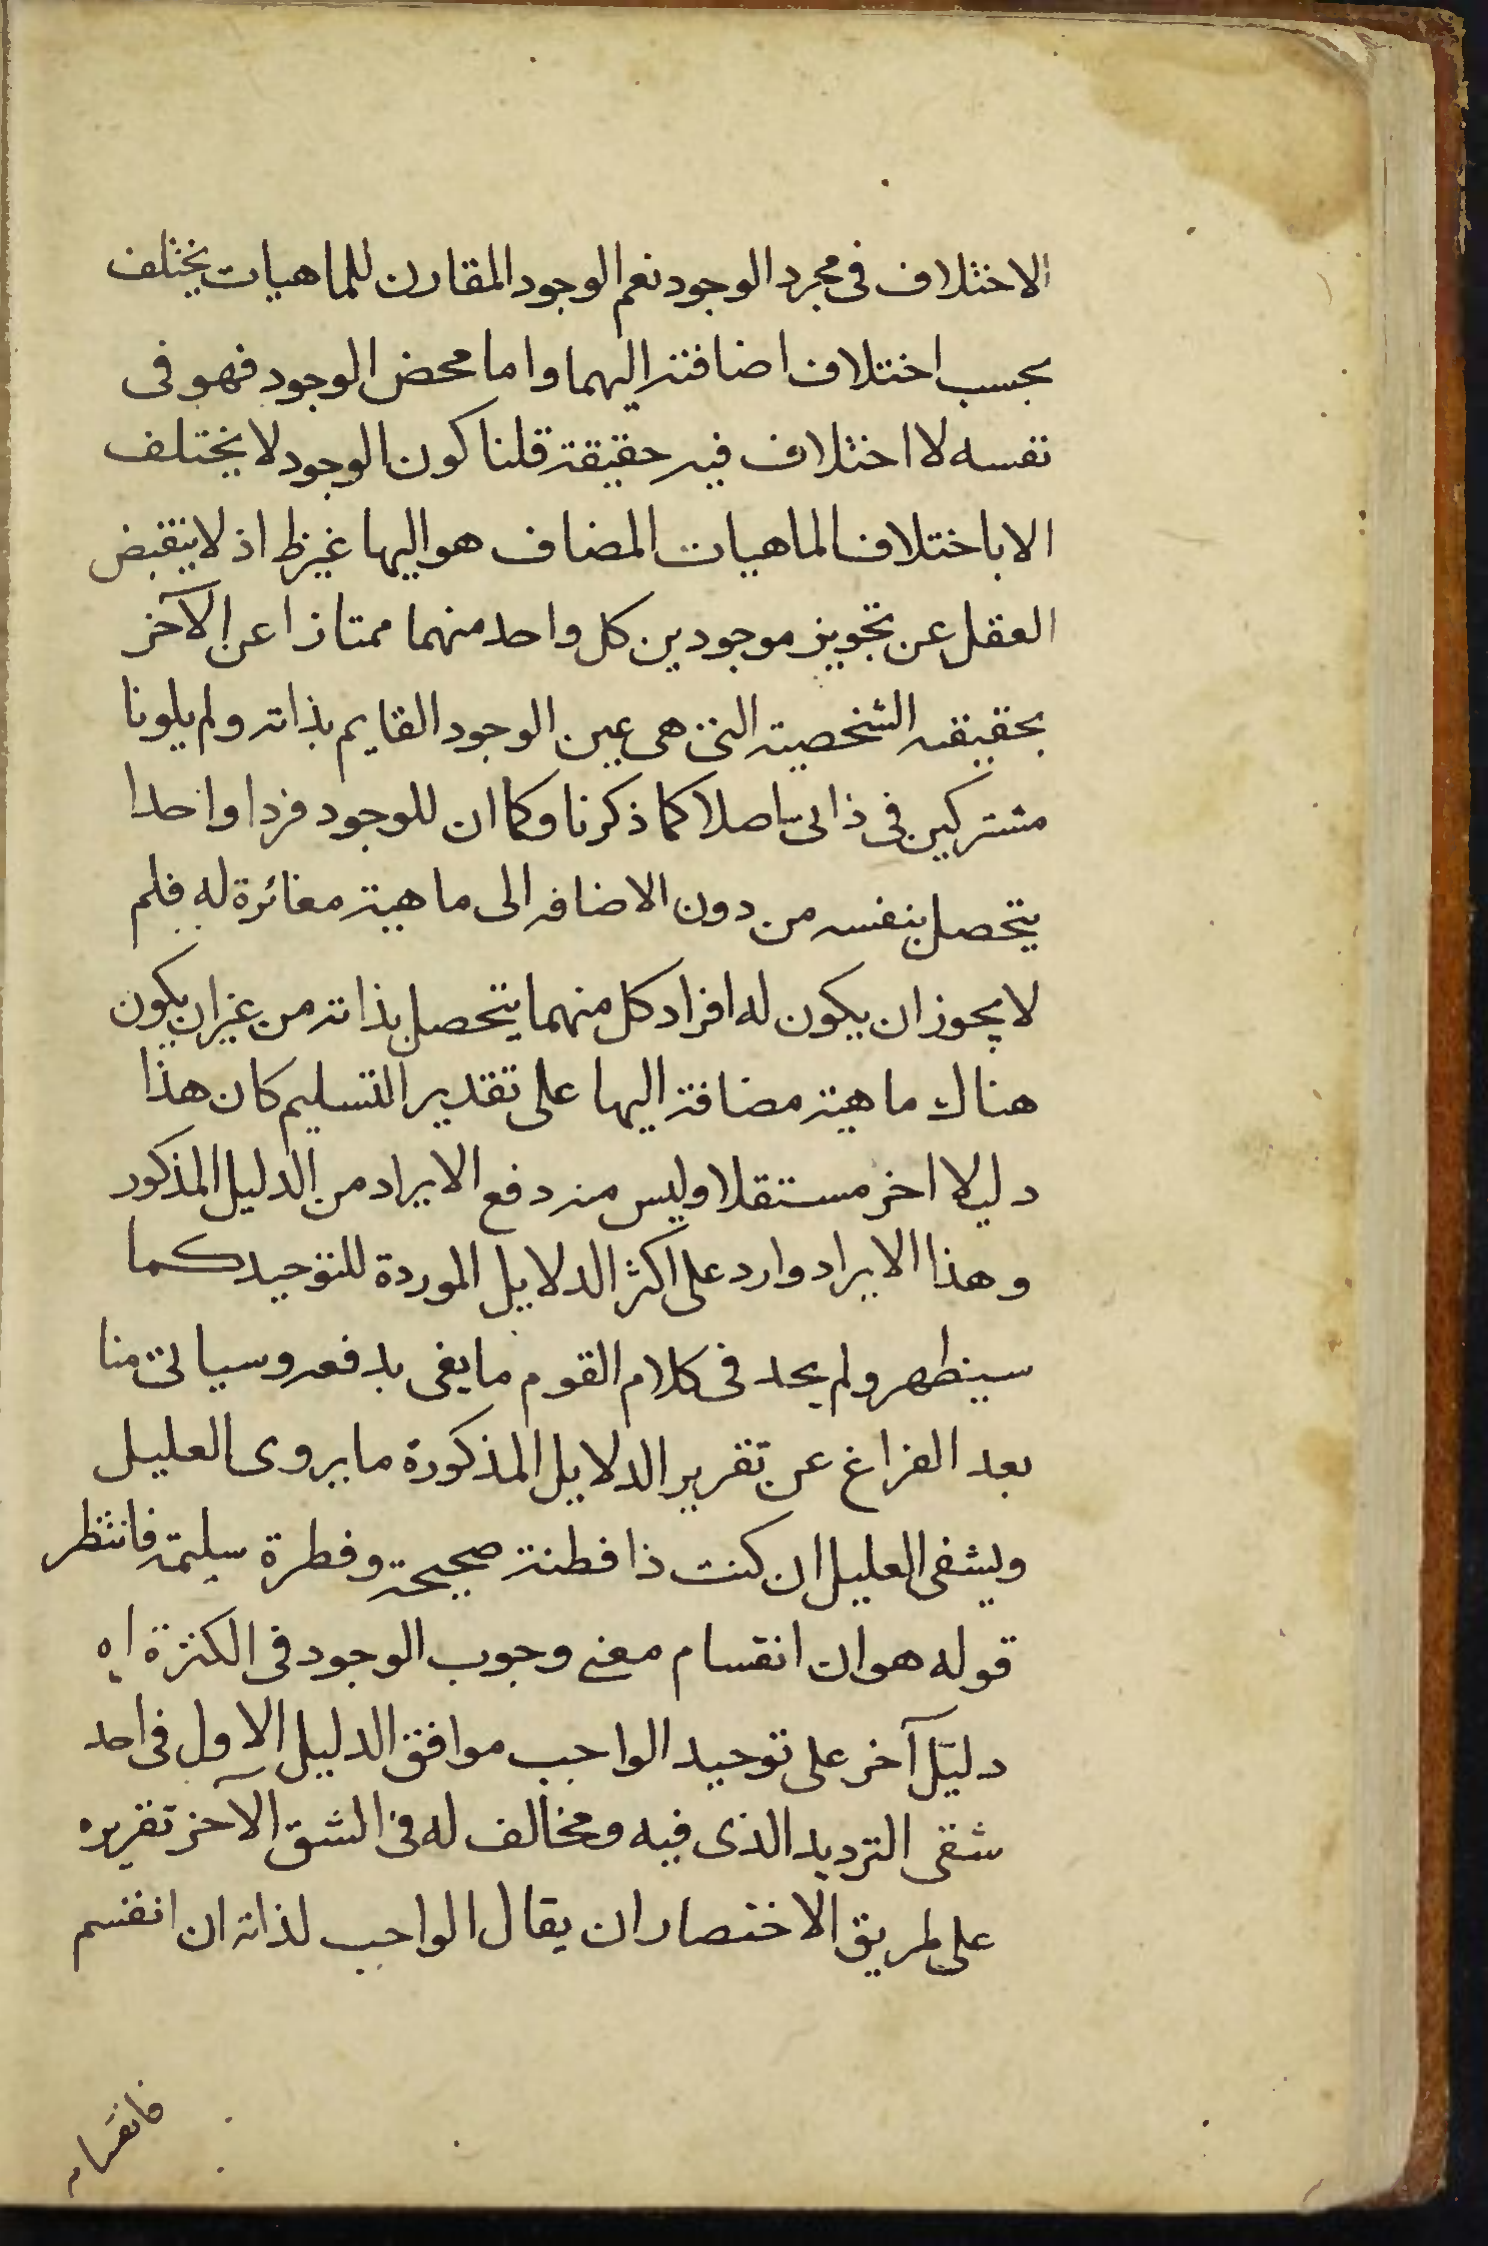 الاختلاف فى مجرد الوجود نعم الوجود المقارن للماهيات يختلف
بحسب اختلاف اضافته اليهما واما محض الوجود فهو فى
نفسه لا اختلاف فيه حقيقة قلنا كون الوجود لا يختلف
الا باختلاف الماهيات المضاف هو اليها غير ظ اذ لا ينقبض
العقل عن تجويز موجودين كل واحد منهما ممتازا عن الآخر
بحقيقته الشخصية التى هى عين الوجود القايم بذاته ولم يلونا
مشتركين فى ذاتى اصلا كما ذكرنا وكما ان للوجود فردا واحدا
يتحصل بنفسه من دون الاضافه الى ماهية مغائرة له فلم
لا يجوز ان يكون له افراد كل منهما يتحصل بذاته من غير ان يكون
هناك ماهية مضافة اليها على تقدير التسليم كان هذا
دليلا اخر مستقلا وليس منه دفع الايراد من الدليل المذكور
وهذا الايراد وارد على اكثر الدلايل الموردة للتوحيد كما
سينظهر ولم يجد فى كلام القوم ما يفى بدفعه وسياتى منا
بعد الفراغ عن تقرير الدلايل المذكورة ما يروى العليل
ويشفى العليل ان كنت ذا فطنة صحيحة وفطرة سليمة فانتظر
قوله هو ان انقسام معنى وجوب الوجود فى الكثرة اه
دليل آخر على توحيد الواجب موافق الدليل الاول فى احد
شقى الترديد الذى فيه ومخالف له فى الشق الآخر تقريره
على طريق الاختصار ان يقال الواجب لذاته ان انقسم
فانقسامه